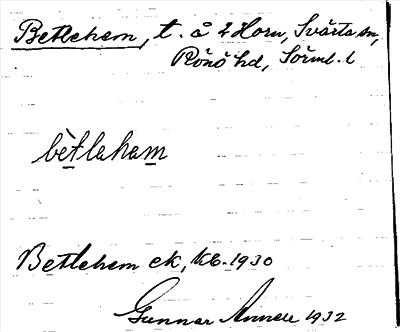 Betleham, t. å L Horn, Svärta sn,
Rönö hd, Sörml. l
bètlaham
Betlehem ek, kb. 1930
Gunnar Annell 1932